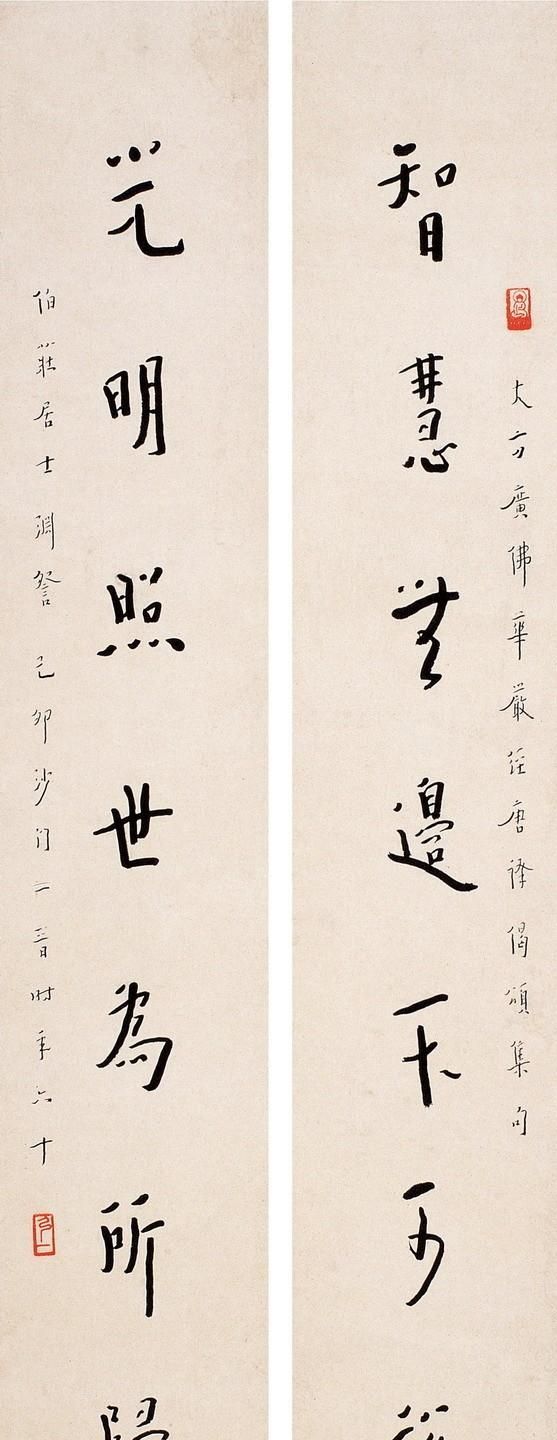 大方廣佛華嚴經唐譯偈頌集句
智慧無邊不可
光明照世為所
伯莊居士淵詧 己卯沙门一音时年六十